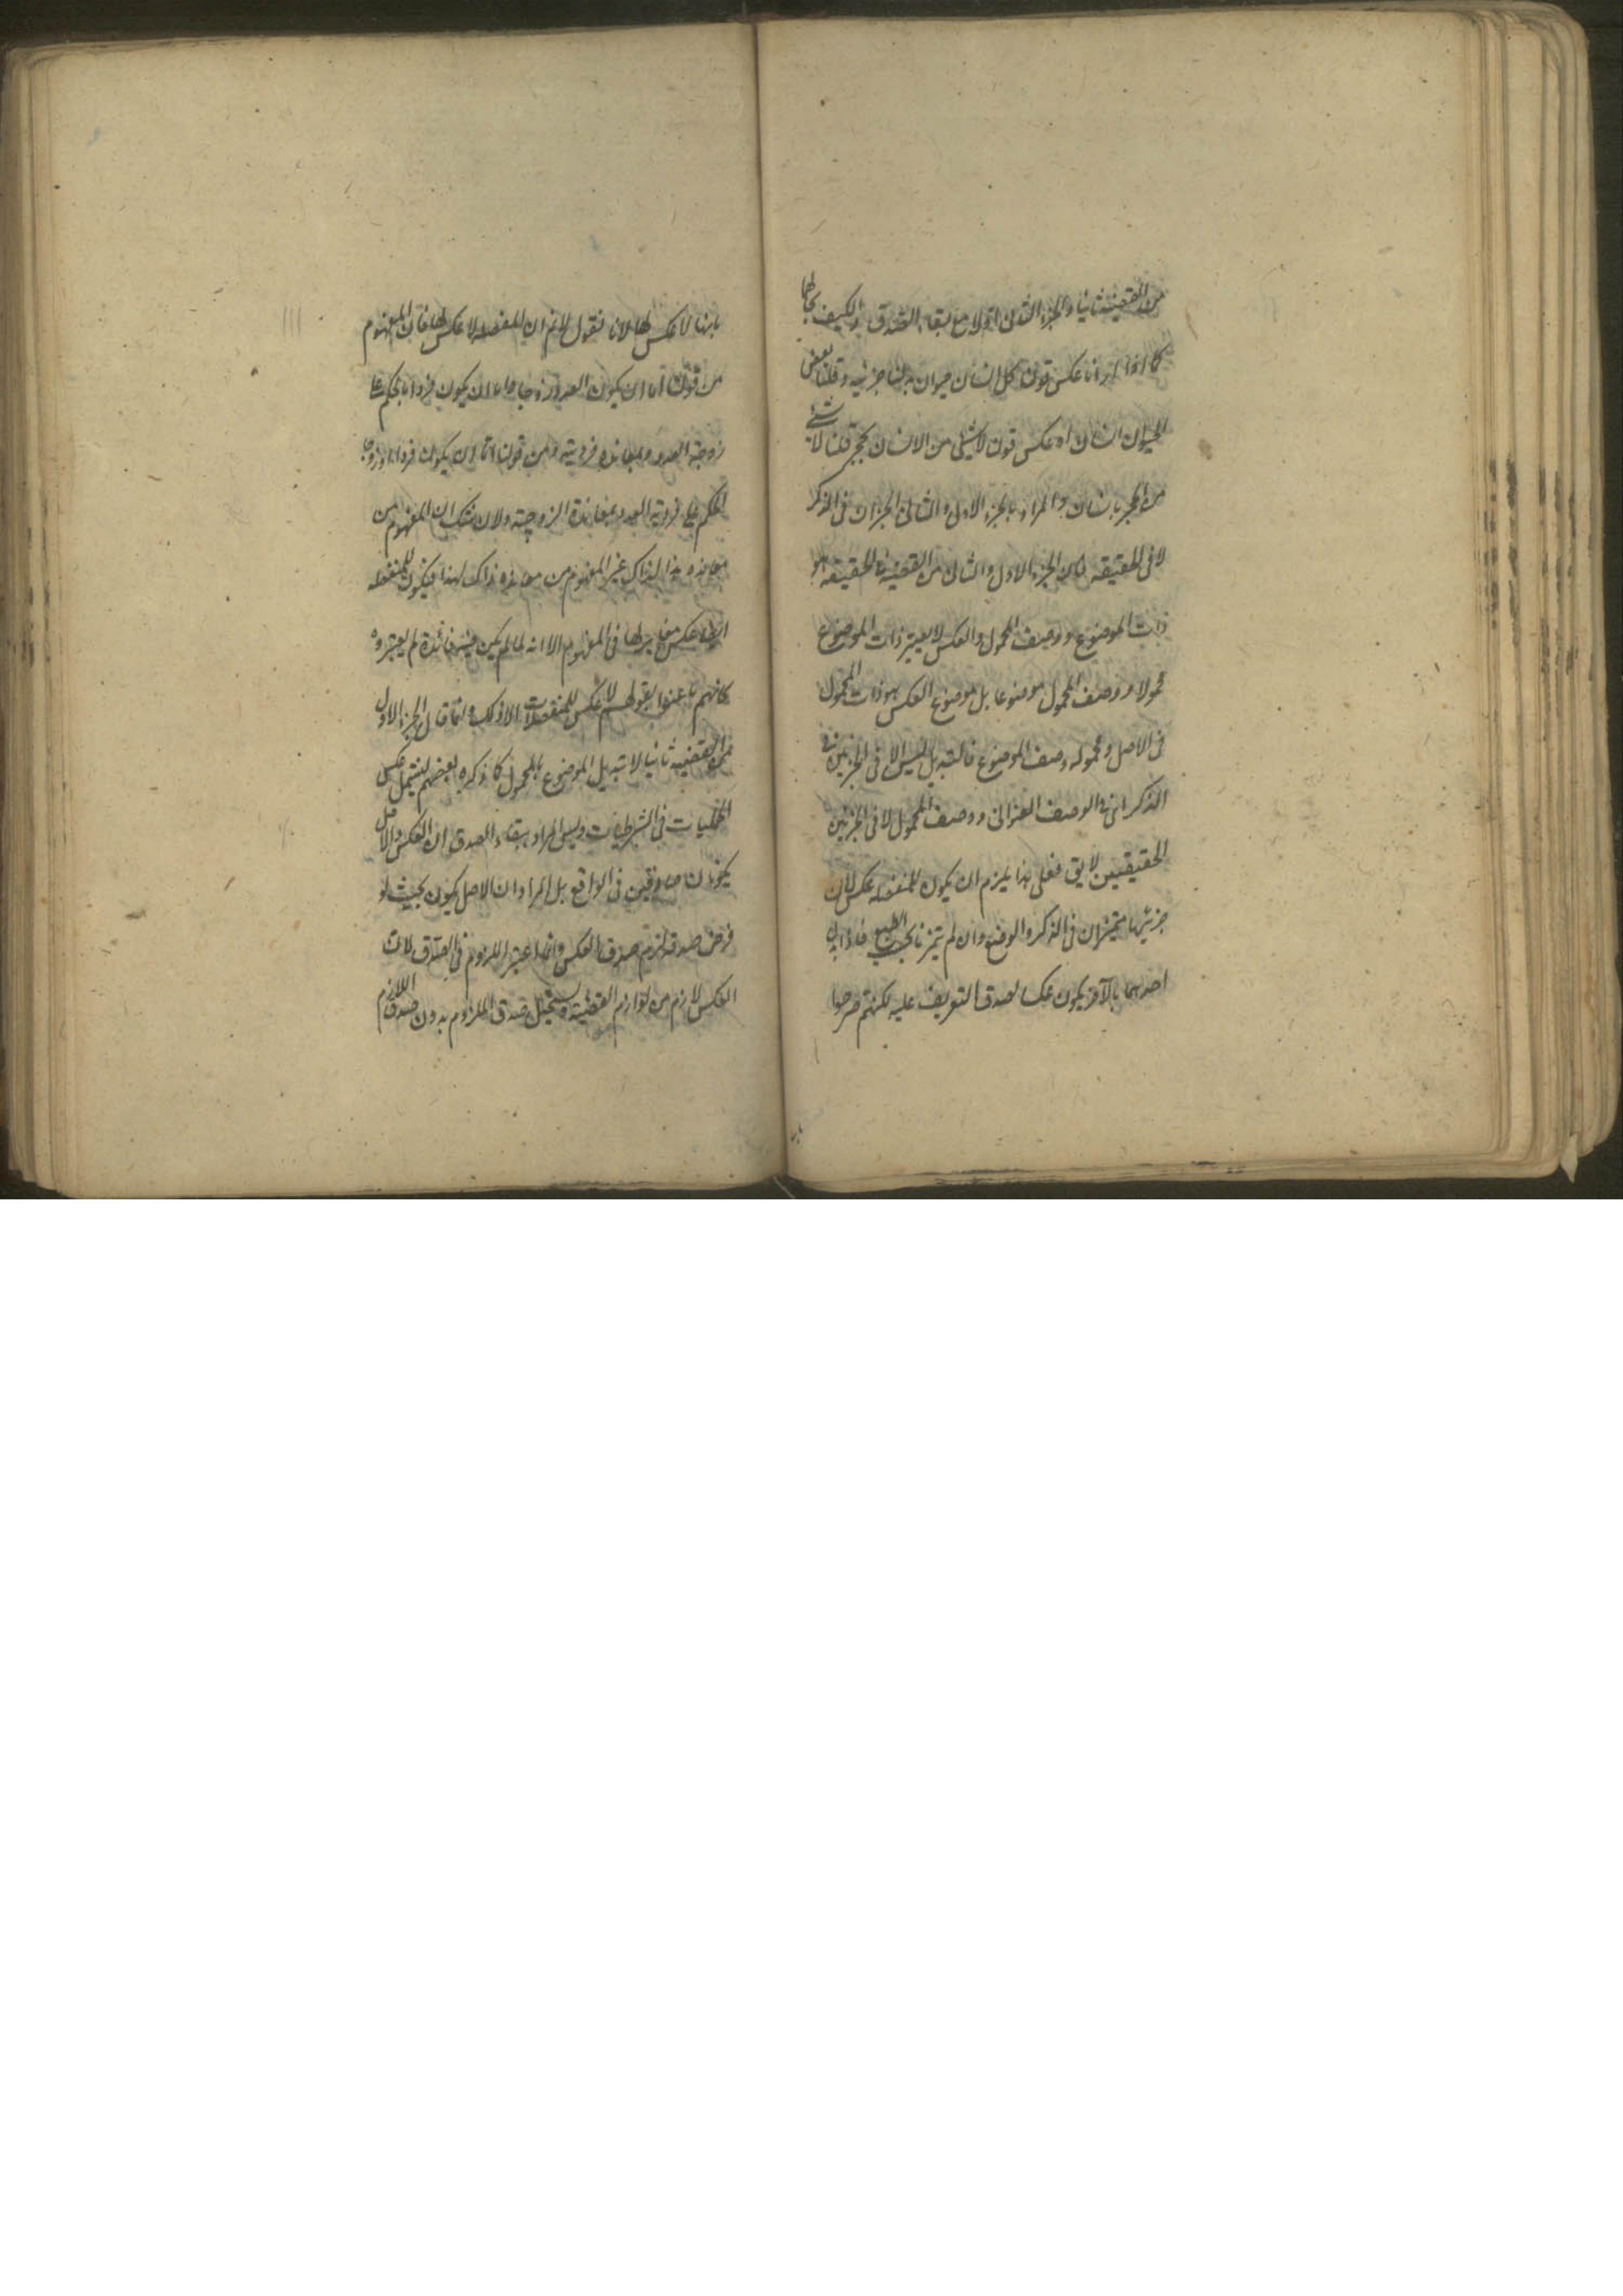 من القضية ثانيا والجزء الثانى اولا مع بقاء الصدق والكيف بحالها
كما اذا اردنا عكس قولنا كل انسان حيوان بدلنا جزئيه وقلنا بعض
الحيوان انسان او عكس قولنا لا شئ من الانسان بحجر قلنا لا شئ
من الحجر بانسان والمراد بالجزء الاول والثانى الجزآن فى الذكر
لا فى الحقيقة فان الجزء الاول والثانى من القضية فى الحقيقة هو
ذات الموضوع ووصف المحمول والعكس لا يصير ذات الموضوع
محمولا ووصف المحمول موضوعا بل موضوع العكس هو ذات المحمول
فى الاصل ومحموله وصف الموضوع فالتبديل ليس الا فى الجزئين فى
الذكر اى فى الوصف العنوانى ووصف المحمول لا فى الجزئين
الحقيقيين لا يق فعلى هذا يلزم ان يكون للمنفصلة عكس لان
جزئيها متميزان فى الذكر والوضع وان لم يتميزا بحسب الطبع فاذا بدل
احدهما بالآخر يكون عكسا لصدق التعريف عليه لكنهم صرحوا
بانها لا عكس لها لانا نقول لانم ان المنفصلة لا عكس لها فان المفهوم
من قولنا اما ان يكون العدد زوجا واما ان يكون فردا الحكم على
زوجية العدد بمعاندة فرديته ومن قولنا اما ان يكون فردا او زوجا
الحكم على فردية العدد بمعاندة الزوجية ولا شك ان المفهوم من
معاندة هذا لذاك غير المفهوم من معاندة ذاك لهذا فيكون للمنفصلة
ايضا عكس مغاير لها فى المفهوم الا انه لما لم يكن فيه فائدة لم يعتبروه
كانهم ما عنوا بقولهم لا عكس للمنفصلات الا ذلك وانما قال الجزء الاول
من القضية ثانيا لا تبديل الموضوع بالمحمول كما ذكره بعضهم ليشمل عكس
الحمليات فى الشرطيات وليس المراد ببقاء الصدق ان العكس والاصل
يكونان صادقين فى الواقع بل المراد ان الاصل يكون بحيث لو
فرض صدقه لزم صدق العكس وانما اعتبر اللزوم فى الصدق لان
العكس لازم من لوازم القضية ويستحيل صدق الملزوم بدون صدق اللازم